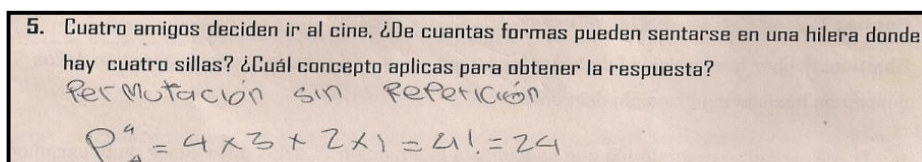 5. Cuatro amigos deciden ir al cine. ¿De cuantas formas pueden sentarse en una hilera donde
hay cuatro sillas? ¿Cuál concepto aplicas para obtener la respuesta?
Permutación sin Repetición
P⁴₄ = 4 x 3 x 2 x 1 = 4! = 24